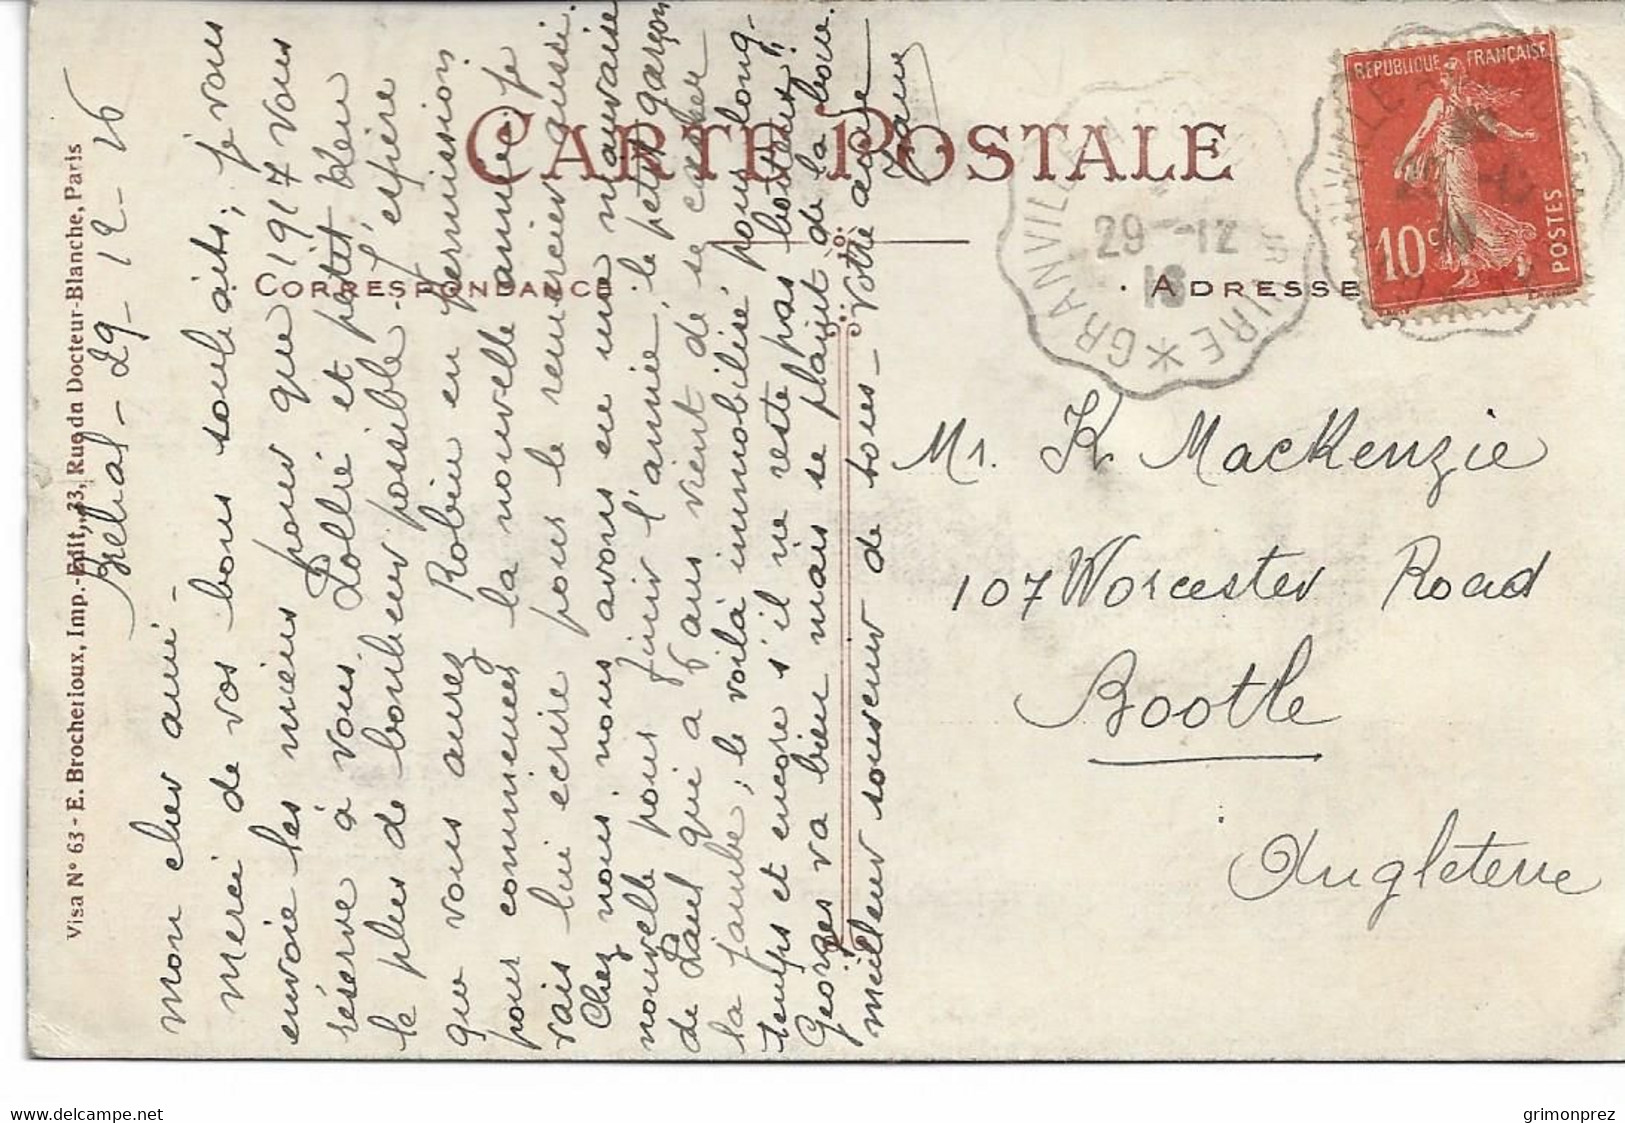 CARTE POSTALE
CORRESPONDANCE
ADRESSE
Visa N° 63 - E. Brocherioux, Imp.-Edit, 33, Rue du Docteur-Blanche, Paris
Bréhal - 29-12-16
mon cher ami -
Merci de vos bons souhaits; je vous
envoie les miens pour que 1917 vous
réserve à vous, Pollie et petit Ken
le plus de bonheur possible. J'espère
que vous aurez Robin en permission
pour commencer la nouvelle année; je
vais lui écrire pour le remercier aussi.
Chez nous, nous avons eu une mauvaise
nouvelle pour finir l'année; le petit garçon
de Paul qui a 6 ans vient de se casser
la jambe; le voilà immobilisé, pour long-
temps et encore s'il ne reste pas boiteux!!
Georges va bien mais se plaint de la boue.
meilleur souvenir de tous - Votre amie
Jane
Mr. K. MacKenzie
107 Worcester Road
Bootle
Angleterre
REPUBLIQUE FRANÇAISE
10 c
POSTES
GRANVILLE
29 -12
16
delcampe.net
grimonprez